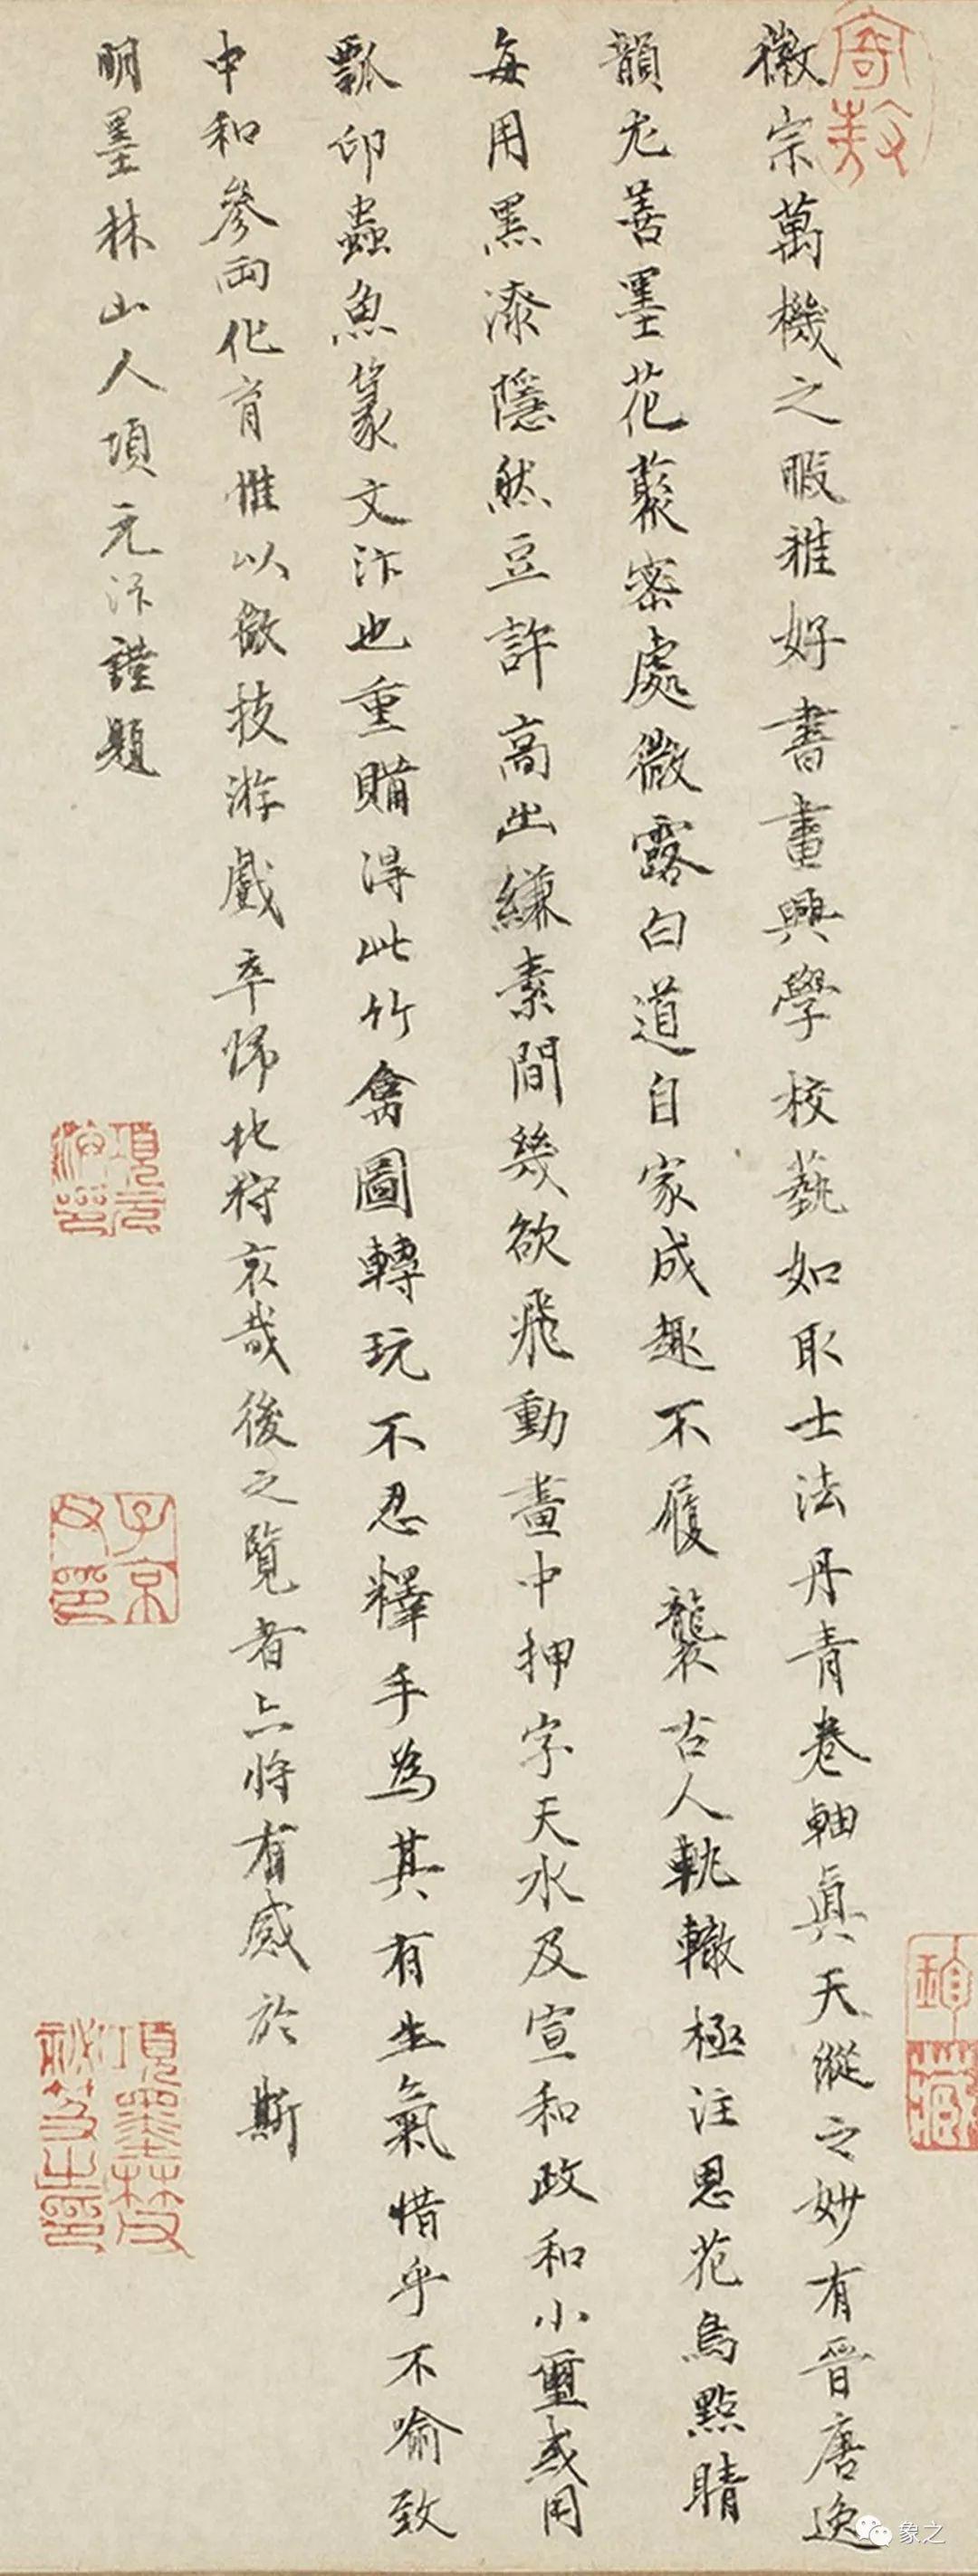 徽宗萬機之暇雅好書畫興學校藝如取士法丹青卷軸真天縱之妙有晉唐逸
韻尤善墨花叢密處微露白道自家成趣不履襲古人軌轍極注思花鳥點睛
每用黑漆隱然豆許高出縑素間幾欲飛動畫中押字天水及宣和政和小璽或用
瓢印蟲魚篆文汴也重購得此竹禽圖轉玩不忍釋手為其有生氣惜乎不喻致
中和參兩化育惟以微技游戲卒歸北狩哀哉後之覽者亦將有感於斯
明墨林山人項元汴謹題
寄敖
項元汴印
子京父印
項墨林父祕笈之印
蘋藏
象之